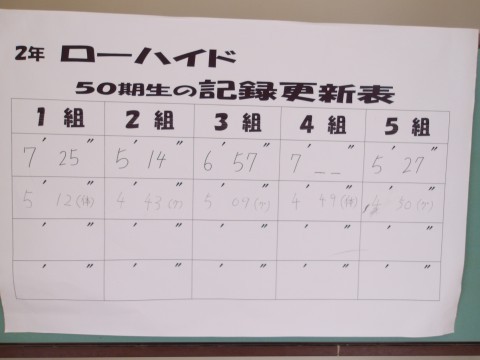 2年 ローハイド
50期生の記録更新表
1組 2組 3組 4組 5組
7′25″ 5′14″ 6′57″ 7′__″ 5′27″
5 12(体) 4 43(ク) 5 09(ク) 4 49(体) 30(ク)
′ ″ ′ ″ ′ ″ ′ ″ ′ ″
′ ″ ′ ″ ′ ″ ′ ″ ′ ″